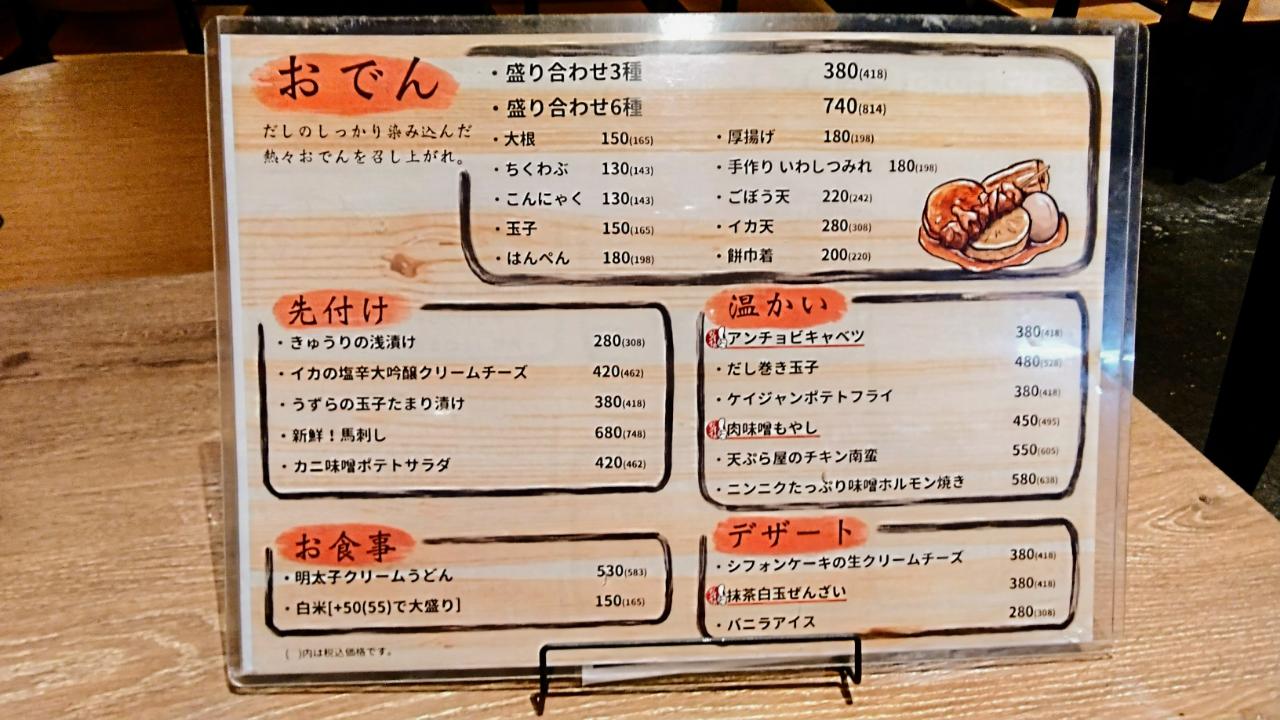 おでん
だしのしっかり染み込んだ
熱々おでんを召し上がれ。
・盛り合わせ3種 380(418)
・盛り合わせ6種 740(814)
・大根 150(165)
・ちくわぶ 130(143)
・こんにゃく 130(143)
・玉子 150(165)
・はんぺん 180(198)
・厚揚げ 180(198)
・手作り いわしつみれ 180(198)
・ごぼう天 220(242)
・イカ天 280(308)
・餅巾着 200(220)
先付け
・きゅうりの浅漬け 280(308)
・イカの塩辛大吟醸クリームチーズ 420(462)
・うずらの玉子たまり漬け 380(418)
・新鮮！馬刺し 680(748)
・カニ味噌ポテトサラダ 420(462)
温かい
アンチョビキャベツ 380(418)
・だし巻き玉子 480(528)
・ケイジャンポテトフライ 380(418)
肉味噌もやし 450(495)
・天ぷら屋のチキン南蛮 550(605)
・ニンニクたっぷり味噌ホルモン焼き 580(638)
お食事
・明太子クリームうどん 530(583)
・白米[+50(55)で大盛り] 150(165)
デザート
・シフォンケーキの生クリームチーズ 380(418)
抹茶白玉ぜんざい 380(418)
・バニラアイス 280(308)
(　)内は税込価格です。